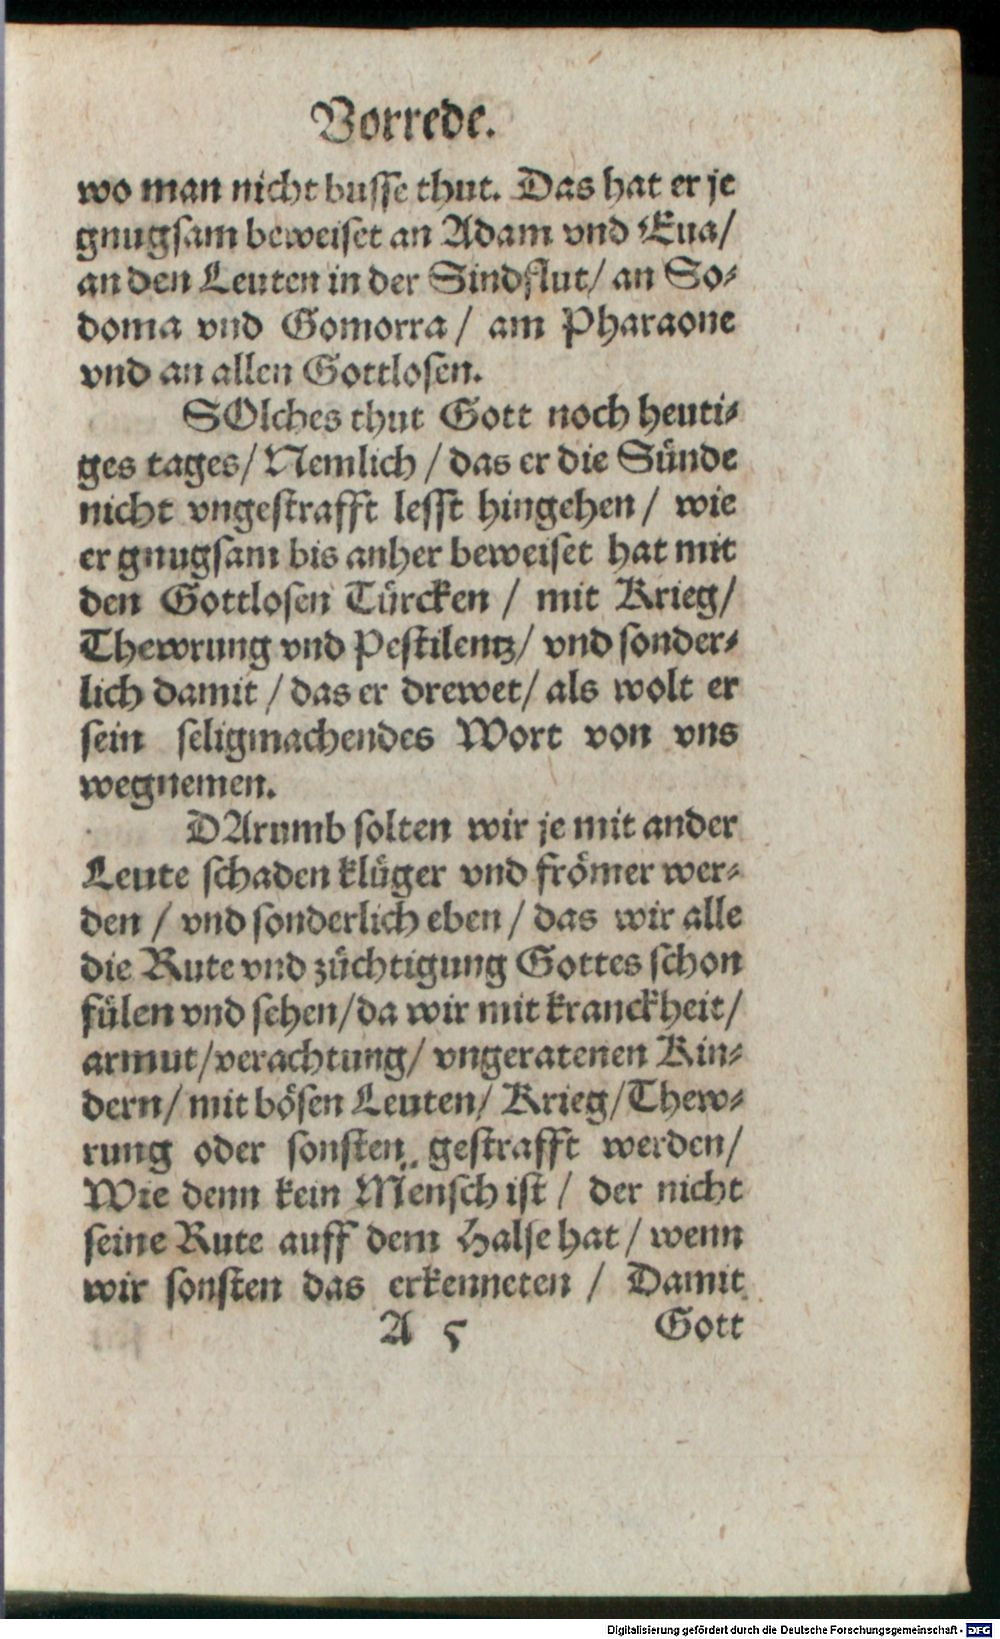 Vorrede.
wo man nicht busse thut. Das hat er je
gnugsam beweiset an Adam vnd Eua/
an den Leuten in der Sindflut/ an So-
doma vnd Gomorra/ am Pharaone
vnd an allen Gottlosen.
SOlches thut Gott noch heuti-
ges tages/ Nemlich/ das er die Sünde
nicht vngestrafft lesst hingehen/ wie
er gnugsam bis anher beweiset hat mit
den Gottlosen Türcken/ mit Krieg/
Thewrung vnd Pestilentz/ vnd sonder-
lich damit/ das er drewet/ als wolt er
sein seligmachendes Wort von vns
wegnemen.
DArumb solten wir je mit ander
Leute schaden klüger vnd frömer wer-
den/ vnd sonderlich eben/ das wir alle
die Rute vnd züchtigung Gottes schon
fülen vnd sehen/ da wir mit kranckheit/
armut/ verachtung/ vngeratenen Kin-
dern/ mit bösen Leuten/ Krieg/ Thew-
rung oder sonsten gestrafft werden/
Wie denn kein Mensch ist/ der nicht
seine Rute auff dem Halse hat/ wenn
wir sonsten das erkenneten/ Damit
A 5 Gott
Digitalisierung gefördert durch die Deutsche Forschungsgemeinschaft - DFG